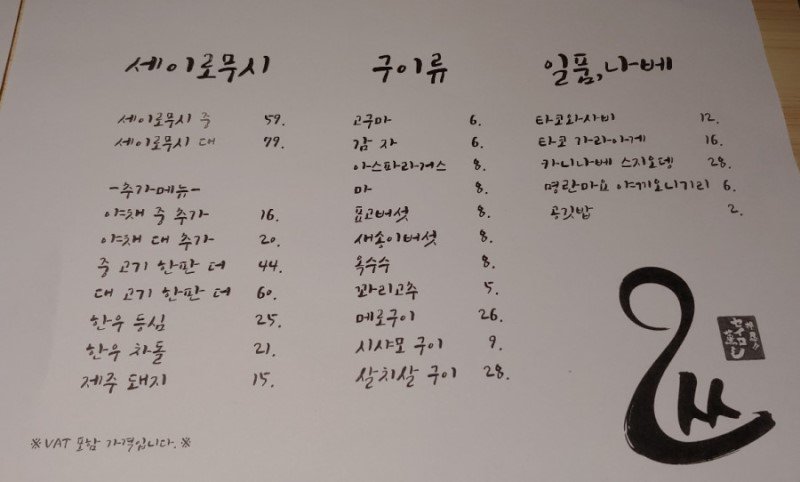 세이로무시
세이로무시 중 59.
세이로무시 대 79.
-추가메뉴-
야채 중 추가 16.
야채 대 추가 20.
중 고기 한판 더 44.
대 고기 한판 더 60.
한우 등심 25.
한우 차돌 21.
제주 돼지 15.
※VAT 포함 가격입니다.※
구이류
고구마 6.
감자 6.
아스파라거스 8.
마 8.
표고버섯 8.
새송이버섯 8.
옥수수 8.
꽈리고추 5.
메로구이 26.
시샤모 구이 9.
살치살 구이 28.
일품,나베
타코와사비 12.
타코 가라아게 16.
카니나베 스지오뎅 28.
명란마요 야끼오니기리 6.
공깃밥 2.
セイロ蒸し